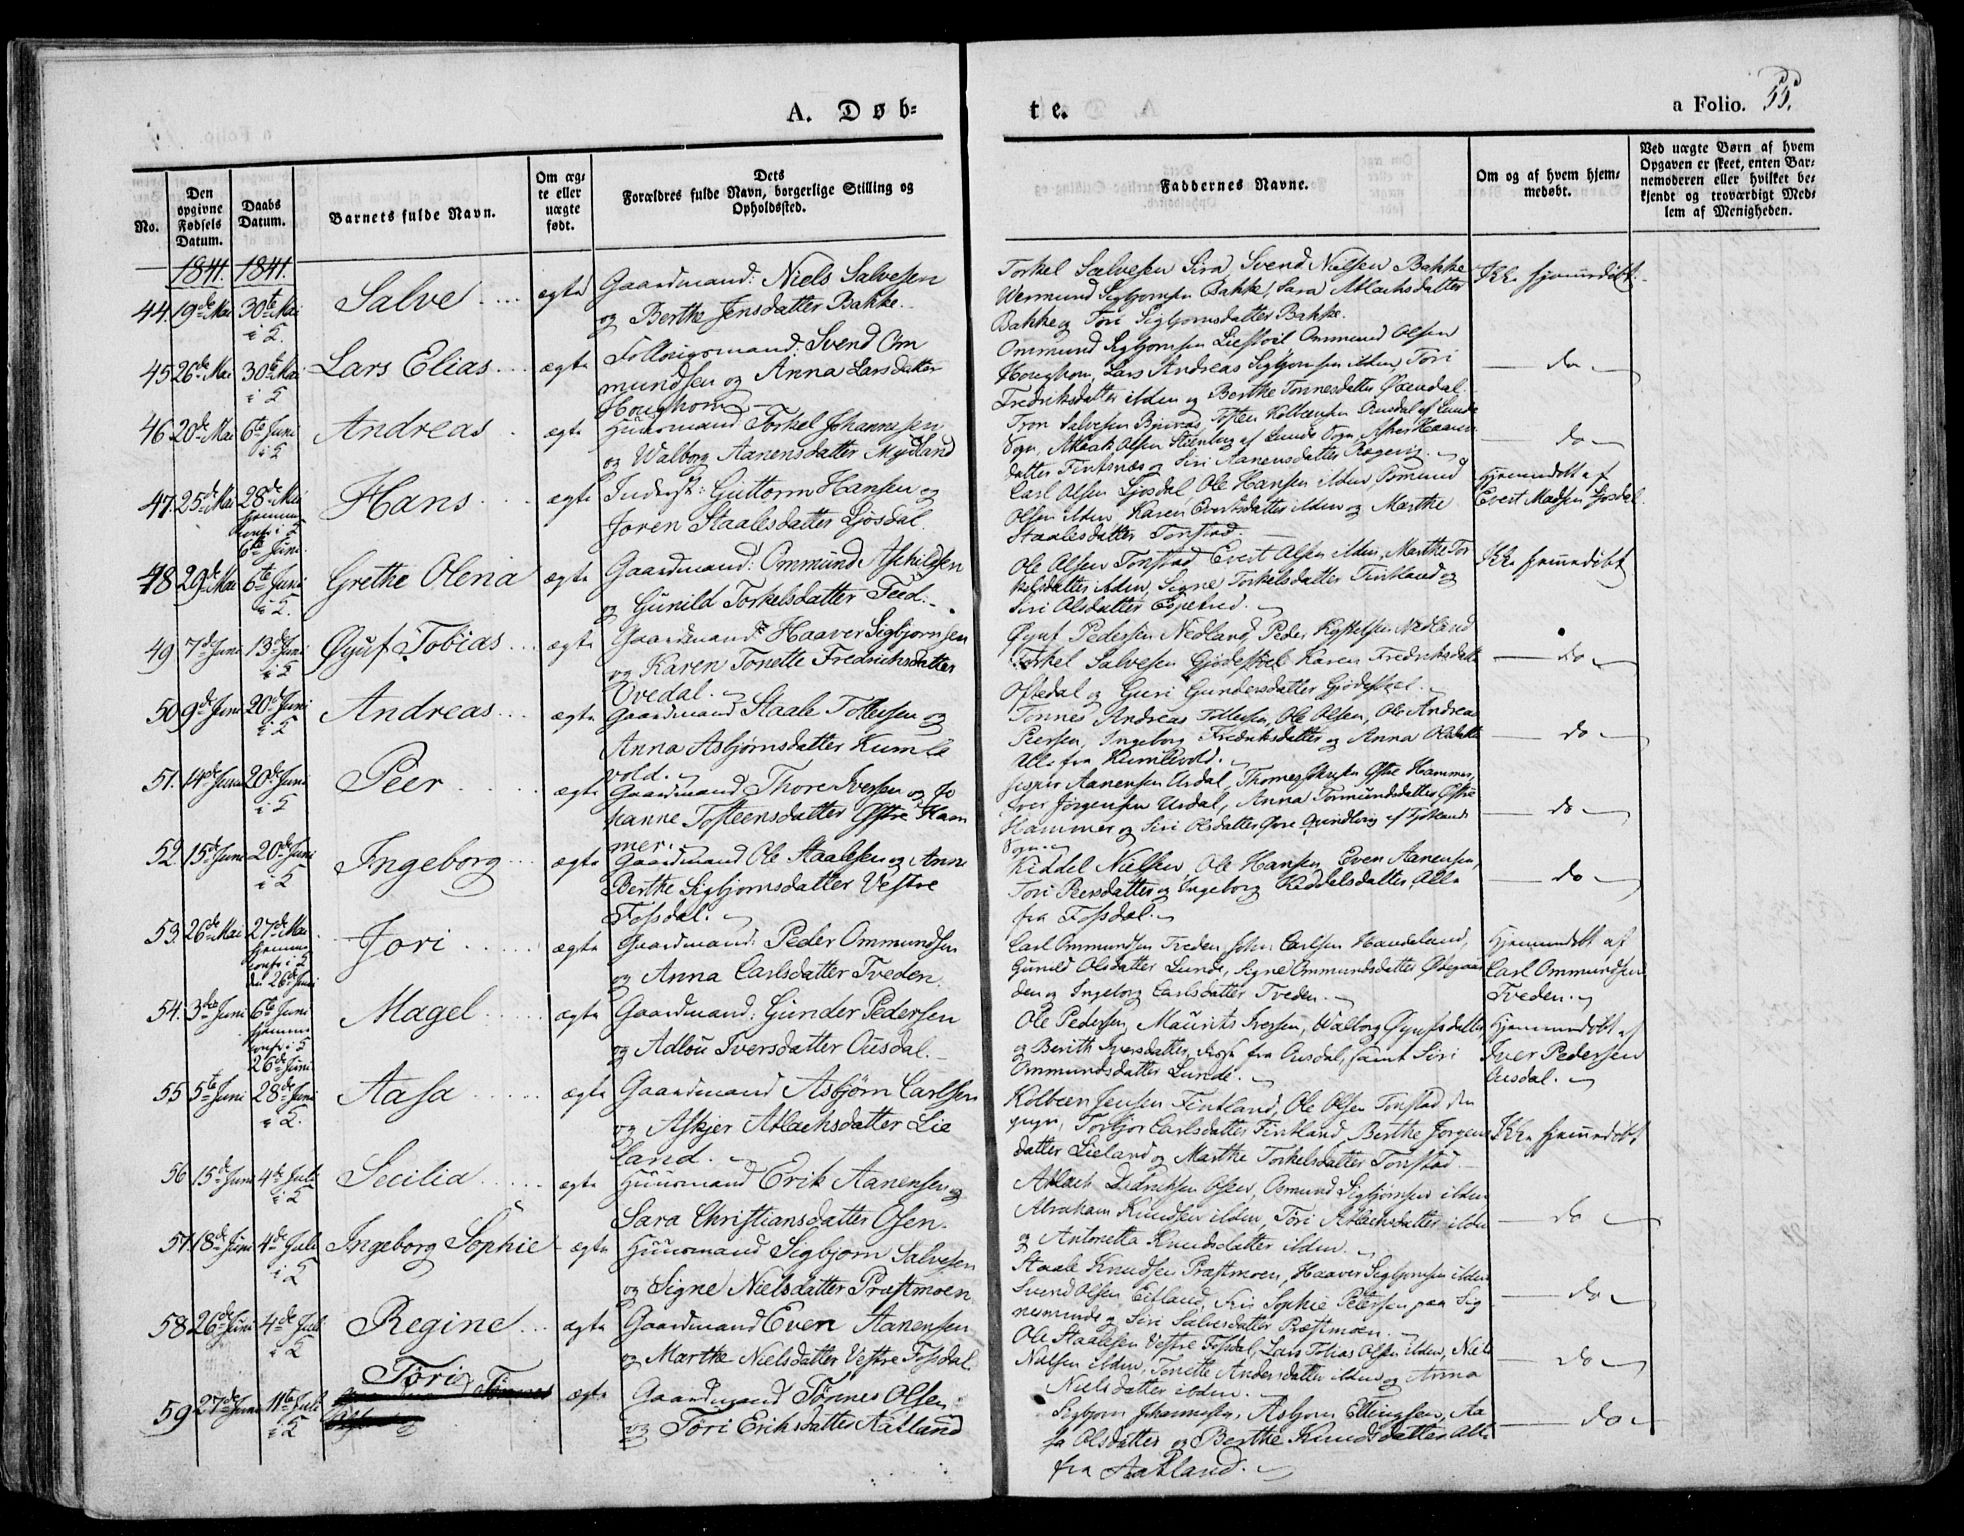 A. Døb=
te.
a Folio. 55.
No.
Den opgivne Fødsels Datum.
Daabs Datum.
Barnets fulde Navn.
Om æg-
te eller
uægte
født.
Dets
Forældres fulde Navn, borgerlige Stilling og
Opholdssted.
Faddernes Navne.
Om og af hvem hjem-
medøbt.
Ved uægte Børn af hvem
Opgaven er skeet, enten Bar-
nemoderen eller hvilket be-
kjendt og troværdigt Med-
lem af Menigheden.
1841. 1841.
44. 19de Mai 30te Mai i K. Salve ægte Gaardmand: Niels Salvesen
og Berthe Jensdatter Bakke.
Torkel Salvesen Sira, Svend Nielsen Bakke
Wermund Sigbjornsen Bakke, Sara Atlachsdatter
Bakke og Tori Sigbjornsdatter Bakke.
Ikke hjemmedøbt.
45 26de Mai 30te Mai i K Lars Elias ægte Svend Om
mundsen og Anna Larsdatter
Houghom
Ommund Sigbjornsen Liestøl Ommund Olsen
Houghom, Lars Andreas Sigbjornsen ibden, Tori
Fredriksdatter ibden og Berthe Tonnesdatter Øxendal
do
46 20de Mai 6te Juni i K Andreas ægte Huusmand Torkel Johannesen
og Walborg Aanensdatter Mydland
Tron Salvesen Tosten Kolbensen Ousdal af Lunde
Sogn, Atlak Olsen Steenberg af Lunde Sogn,
datter Fintsnæs og Siri Aanensdatter Rægevig.
do
47. 25de Mai 28de Mai hjemme conf. i K 6te Juni. Hans ægte Inderst: Guttorm Hansen og
Joren Staalesdatter Ljosdal.
Carl Olsen Ljosdal Ole Hansen ibden, Osmund
Olsen ibden, Karen Evertsdatter ibden og Marthe
Staalesdatter Tonstad
Hjemmedøbt af
Evert Madsen Ljosdal
48 29de Mai 6te Juni i K. Grethe Olena ægte Gaardmand: Ommund Aschildsen
og Gunild Torkelsdatter Feed.
Ole Olsen Tonstad Evert Olsen ibden, Marthe Tor
kelsdatter ibden, Signe Torkelsdatter Fintland og
Siri Olsdatter Espetved.
Ikke hjemmedøbt
49 7de Juni 13de Juni i K Øyuf Tobias ægte Gaardmand Haaver Sigbjornsen
og Karen Tonette Fredriksdatter
Ovedal.
Øyuf Pedersen Nedland, Peder Nedland
Torkel Salvesen Gjødestøl Karen Fredriksdatter
Oftedal og Guri Gundersdatter Gjødestøl.
do
50 9de Juni 20de Juni i K Andreas ægte Gaardmand Staale Tollersen og
Anna Asbjørnsdatter Kumle
vold.
Tonnes Andreas Tollersen, Ole Olsen, Ole Andreas
Peersen, Ingeborg Fredriksdatter og Anna Olsdatter
Alle fra Kumlevold.
do
51. 14de Juni 20de Juni i K Peer ægte Gaardmand Thore Iversen og Jo
hanne Tosteensdatter Østre Ham
mer.
Jesper Aanensen Usdal, Thomes Østre Hammer,
Iver Jorgensen Usdal, Anna Tormundsdatter Østre
Hammer og Siri Olsdatter Øvre af
Sogn.
do
52 15de Juni 20de Juni i K Ingeborg ægte Gaardmand Ole Staalesen og Anne
Berthe Sigbjornsdatter Vestre
Fossdal.
Keddel Nielsen, Ole Hansen, Even Aanensen,
Tori Peersdatter og Ingeborg Keddelsdatter, Alle
fra Fossdal.
do
53. 26de Mai 27de Mai hjemme conf. i K den 26de Juni Jori ægte Gaardmand: Peder Ommundsen
og Anna Carlsdatter Tveden.
Carl Ommundsen Tveden, John Carlsen Haudeland,
Gunild Olsdatter Lunde, Signe Ommundsdatter
den og Ingeborg Carlsdatter Tveden.
Hjemmedøbt af
Carl Ommundsen
Tveden.
54. 3die Juni 6te Juni hjemme conf. i K 26de Juni. Magel ægte Gaardmand: Gunder Pedersen
og Adlou Iversdatter Ousdal.
Ole Pedersen, Maurits Iversen, Walborg Øyufsdatter
og Berith Iversdatter, fra Ousdal, samt Siri
Ommundsdatter Lunde.
Hjemmedøbt af
Iver Pedersen
Ousdal.
55 5te Juni 28de Juni i K. Aasa ægte Gaardmand Asbjørn Carlsen
og Askjer Atlachsdatter Lie
land.
Kolbeen Jensen Fintland, Ole Olsen Tonstad den
yngre, Torbjor Carlsdatter Fintland, Berthe Jorgens
datter Lieland og Marthe Torkelsdatter Tonstad.
Ikke hjemmedøbt
56 15de Juni 4de Juli i K Secilia ægte Huusmand Erik Aanensen og
Sara Christiansdatter Osen.
Atlack Didriksen Osen, Osmund Sigbjornsen ibden
Abraham Knudsen ibden, Tori Atlachsdatter ibden
og Antonetta Knudsdatter ibden.
do
57. 18de Juni 4de Juli i K Ingeborg Sophie ægte Huusmand Sigbjorn Salvesen
og Signe Nielsdatter Præstmoen
Staale Knudsen Præstmoen, Haaver Sigbjornsen ibden
Svend Olsen Eitland, Sophie Petersen paa Sig
nesmunde og Siri Salvesdatter Præstmoen.
do
58 26de Juni 4de Juli i K Regine ægte Gaardmand Even Aanensen
og Marthe Nielsdatter Vestre Fossdal.
Ole Staalesen Vestre Fossdal, Lars Tobias Olsen ibden, Niels
Nielsen ibden, Tonette Andersdatter ibden og Anna
Nielsdatter ibden.
do
59 27de Juni 11te Juli i K Tøri Tønnes ægte Gaardmand Tønnes Olsen
og Tøri Eriksdatter Aatland
Sigbjorn Johannesen, Asbjorn Ellingsen, Aa
sa Olsdatter og Berthe Knudsdatter, Alle
fra Aatland.
do